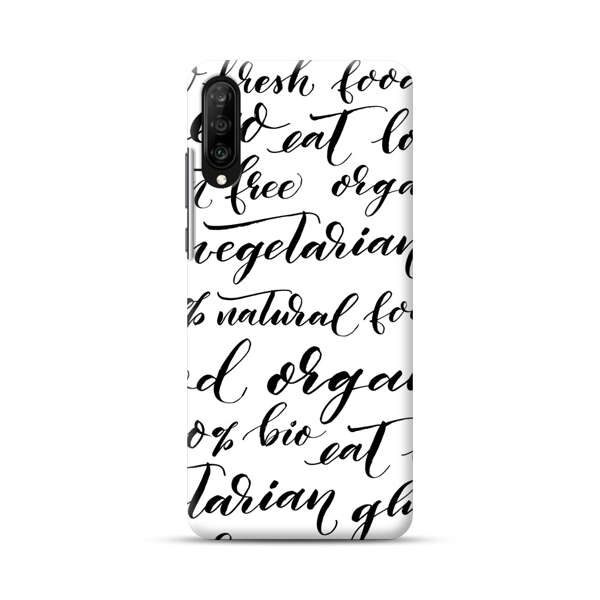 fresh food
bio eat lo
n free orga
vegetarian
% natural foo
d orga
0% bio eat
tarian glu